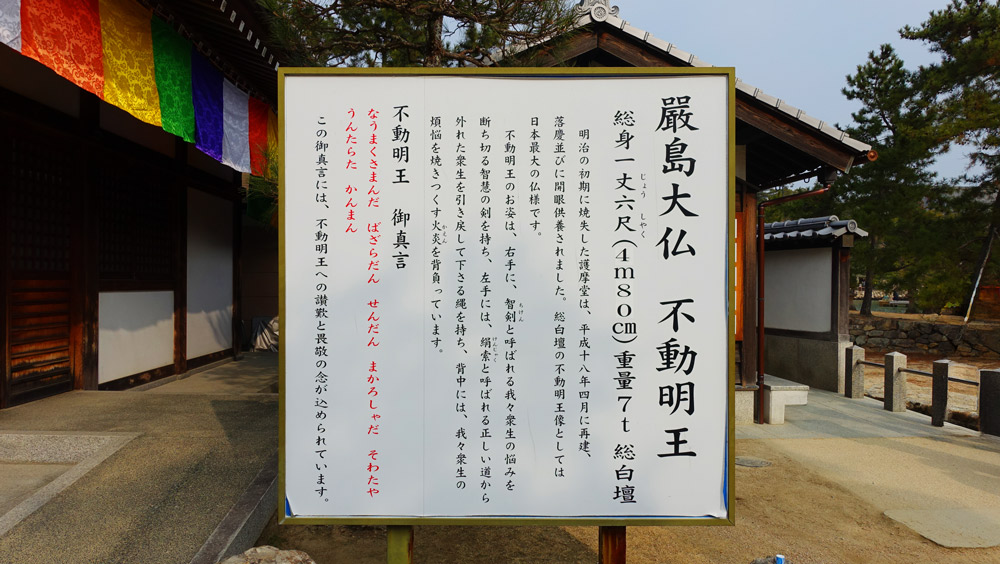 嚴島大仏 不動明王
総身一丈六尺(4m80cm)重量7t 総白檀
じょう しゃく
明治の初期に焼失した護摩堂は、平成十八年四月に再建、
落慶並びに開眼供養されました。総白壇の不動明王像としては
日本最大の仏様です。
不動明王のお姿は、右手に、智剣と呼ばれる我々衆生の悩みを
ちけん
断ち切る智慧の剣を持ち、左手には、絹索と呼ばれる正しい道から
けんじゃく
外れた衆生を引き戻して下さる縄を持ち、背中には、我々衆生の
煩悩を焼きつくす火炎を背負っています。
かえん
不動明王 御真言
なうまくさまんだ ばざらだん せんだん まかろしゃだ そわたや
うんたらた かんまん
この御真言には、不動明王への讃歎と畏敬の念が込められています。